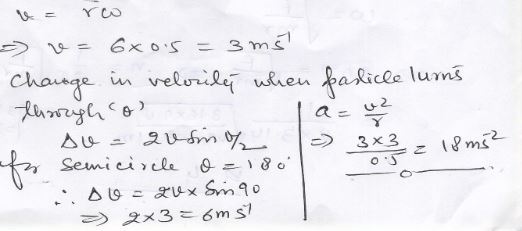 v = rω
⇒ v = 6×0.5 = 3 ms⁻¹
Change in velocity when particle turns
through 'θ'
Δv = 2v sin θ/2
for semicircle θ = 180°
∴ Δv = 2v × Sin 90
⇒ 2×3 = 6 ms⁻¹
a = v²/r
⇒ 3×3/0.5 = 18 ms⁻²